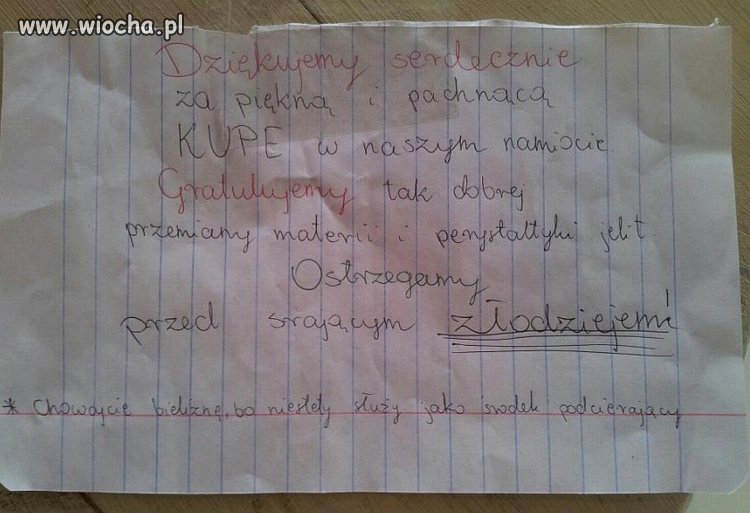 www.wiocha.pl
Dziękujemy serdecznie
za piękną i pachnącą
KUPE w naszym namiocie
Gratulujemy tak dobrej
przemiany materii i perystaltyki jelit.
Ostrzegamy
przed srającym złodziejem!
* Chowajcie bieliznę, bo niestety służy jako środek podcierający